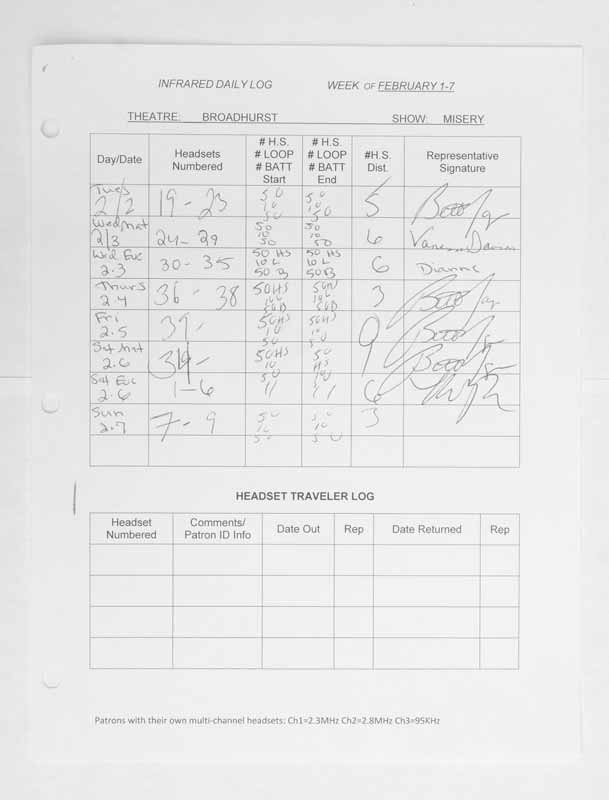 INFRARED DAILY LOG WEEK OF FEBRUARY 1-7
THEATRE: BROADHURST SHOW: MISERY
Day/Date Headsets Numbered # H.S. # LOOP # BATT Start # H.S. # LOOP # BATT End #H.S. Dist. Representative Signature
Tues 2/2 19 - 23 50 10 50 50 10 50 5
Wed Mat 2/3 24 - 29 50 10 50 50 10 50 6 Vanessa
Wed Eve 2.3 30 - 35 50 HS 10 L 50 B 50 HS 10 L 50 B 6 Dianne
Thurs 2.4 36 - 38 50HS 10L 50B 50H 10L 50B 3
Fri 2.5 39- 50HS 10 50 50HS 10 50
Sat Mat 2.6 39- 50HS 10 50 50 HS 10 9
Sat Eve 2.6 1-6 11 11 6
Sun 2.7 7 - 9 50 10 50 50 10 50 3
HEADSET TRAVELER LOG
Headset Numbered Comments/ Patron ID Info Date Out Rep Date Returned Rep
Patrons with their own multi-channel headsets: Ch1=2.3MHz Ch2=2.8MHz Ch3=95KHz